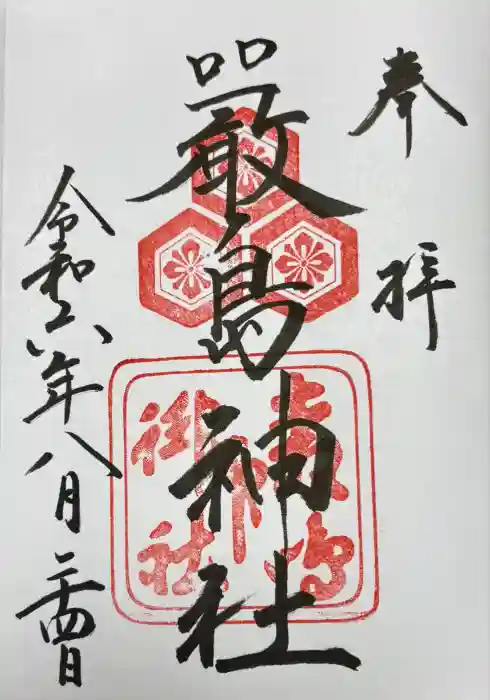 奉拝
嚴島神社
令和六年八月二十四日